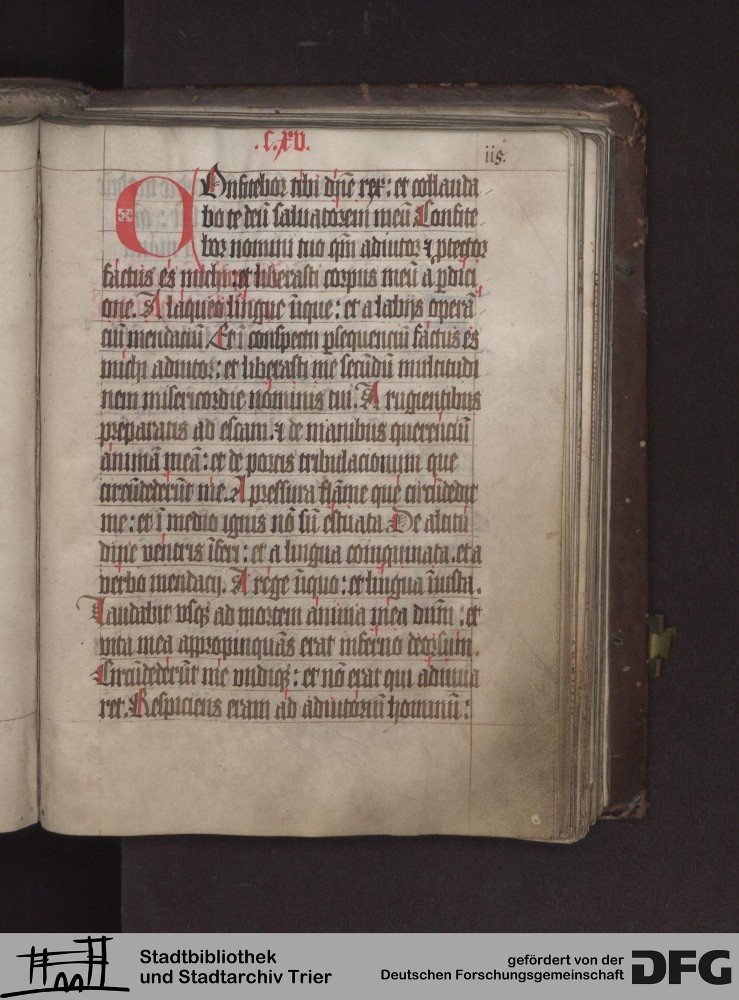 .C.XV.
iis.
COnfitebor tibi dn̄e rex: et collauda
bo te deū saluatorem meū Confite
bor nomini tuo qm̄ adiutor ⁊ ꝓtector
factus es michi: et liberasti corpus meū a ꝑdici
one. A laqueo lingue īique: et a labijs operā
ciū mendaciū Et ī conspectu ꝑsequenciū factus es
michi adiutor: et liberasti me secūdū multitudi
nem misericordie nominis tui. A rugientibus
preparatis ad escam. ⁊ de manibus querenciū
animā meā: et de portis tribulacionum que
circūdederūt me. A pressura flāme que circūdedit
me: et ī medio ignis nō sū estuata. De altitu
dine ventris īferi: et a lingua coinquinata. et a
verbo mendacij. A rege īiquo: et lingua īiusta.
Laudabit vsqꝫ ad mortem anima mea dn̄m: et
vita mea appropinquās erat inferno deorsum.
Circūdederūt me vndiqꝫ: et nō erat qui adiuua
ret. Respiciens eram ad adiutoriū hominū:
Stadtbibliothek
und Stadtarchiv Trier
gefördert von der
Deutschen Forschungsgemeinschaft
DFG